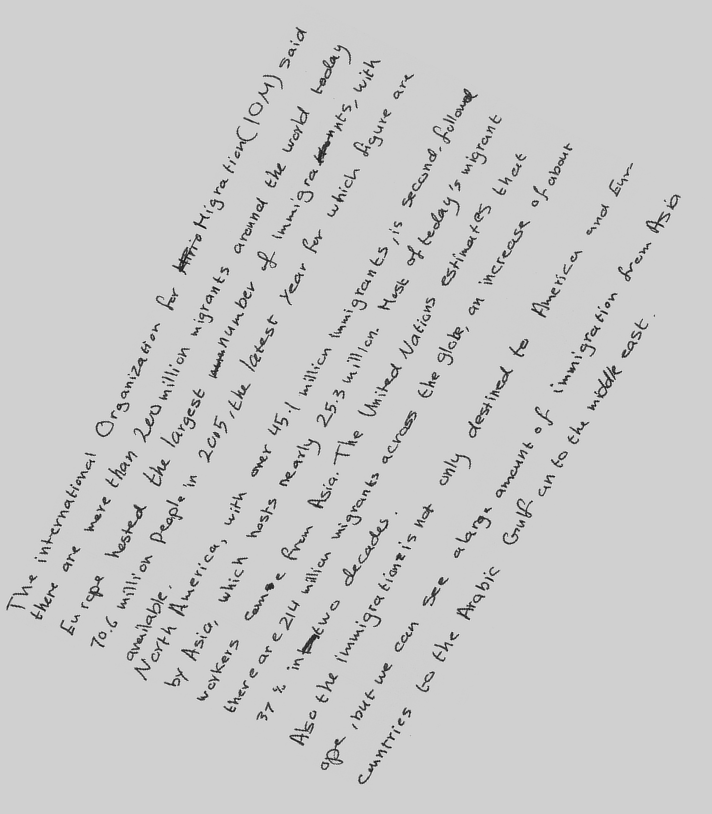 The international Organization for Migration(IOM) said
there are more than 200 million migrants around the world today
Europe hosted the largest number of immigrants, with
70.6 million people in 2005, the latest year for which figure are
available.
North America, with over 45.1 million immigrants, is second, followed
by Asia, which hosts nearly 25.3 million. Most of today's migrant
workers come from Asia. The United Nations estimates that
there are 214 million migrants across the globe, an increase of about
37% in two decades.
Also the immigration is not only destined to America and Eur-
ope, but we can see a large amount of immigration from Asia
countries to the Arabic Gulf an to the middle east.